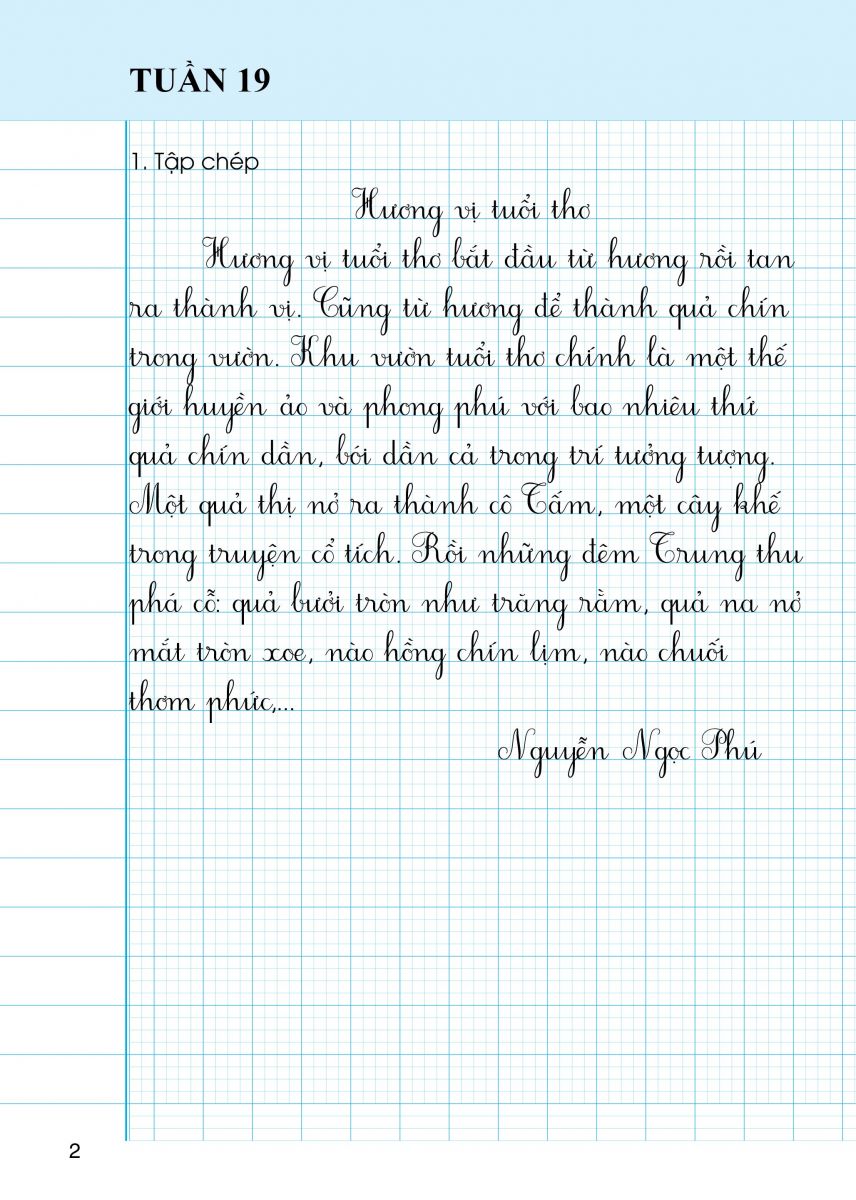 TUẦN 19
1. Tập chép
Hương vị tuổi thơ
Hương vị tuổi thơ bắt đầu từ hương rồi tan
ra thành vị. Cũng từ hương để thành quả chín
trong vườn. Khu vườn tuổi thơ chính là một thế
giới huyền ảo và phong phú với bao nhiêu thứ
quả chín dần, bói dần cả trong trí tưởng tượng.
Một quả thị nở ra thành cô Tấm, một cây khế
trong truyện cổ tích. Rồi những đêm Trung thu
phá cỗ: quả bưởi tròn như trăng rằm, quả na nở
mắt tròn xoe, nào hồng chín lịm, nào chuối
thơm phức,...
Nguyễn Ngọc Phú
2